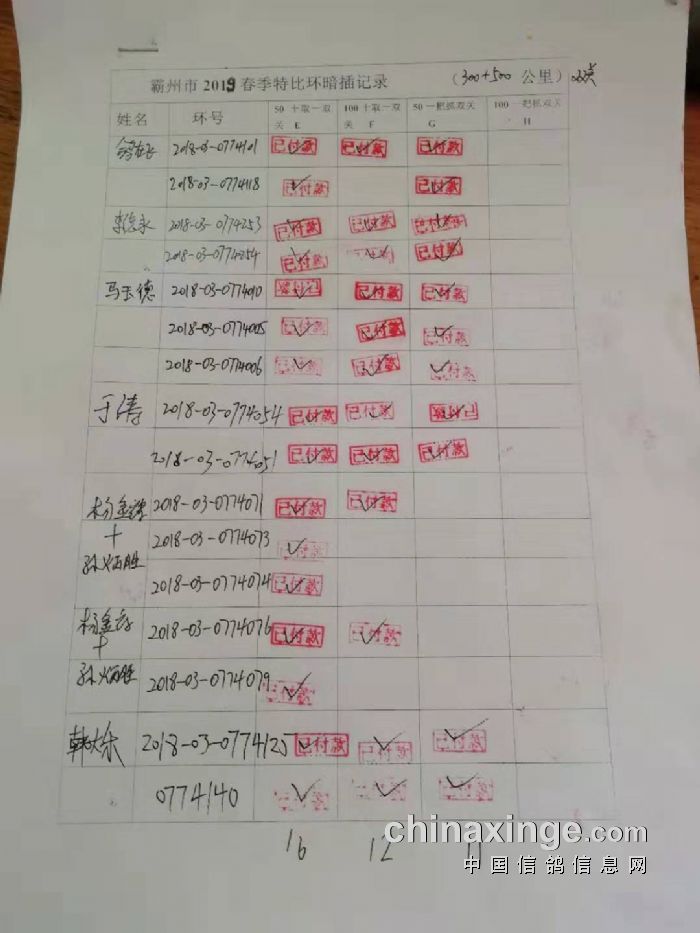 霸州市 2019 春季特比环暗插记录 (300+500 公里) 双关
姓名 环号 50 十取一双关 E 100 十取一双关 F 50 一把抓双关 G 100 一把抓双关 H
2018-03-0774101 已付款 已付款 已付款
2018-03-0774118 已付款 已付款
2018-03-0774253 已付款 已付款 已付款
2018-03-0774254 已付款 已付款
马玉德 2018-03-0774010 已付款 已付款
2018-03-0774005 已付款 已付款 已付款
2018-03-0774006 已付款 已付款 已付款
于涛 2018-03-0774054 已付款 已付款
2018-03-0774051 已付款 已付款 已付款
2018-03-0774071 已付款 已付款
+ 2018-03-0774073 已付款
孙炳胜 2018-03-0774074 已付款
2018-03-0774076 已付款 已付款
+
孙炳胜 2018-03-0774079 已付款
韩大东 2018-03-0774125 已付款 已付款 已付款
0774140
16 12 11
chinaxinge.com
中国信鸽信息网